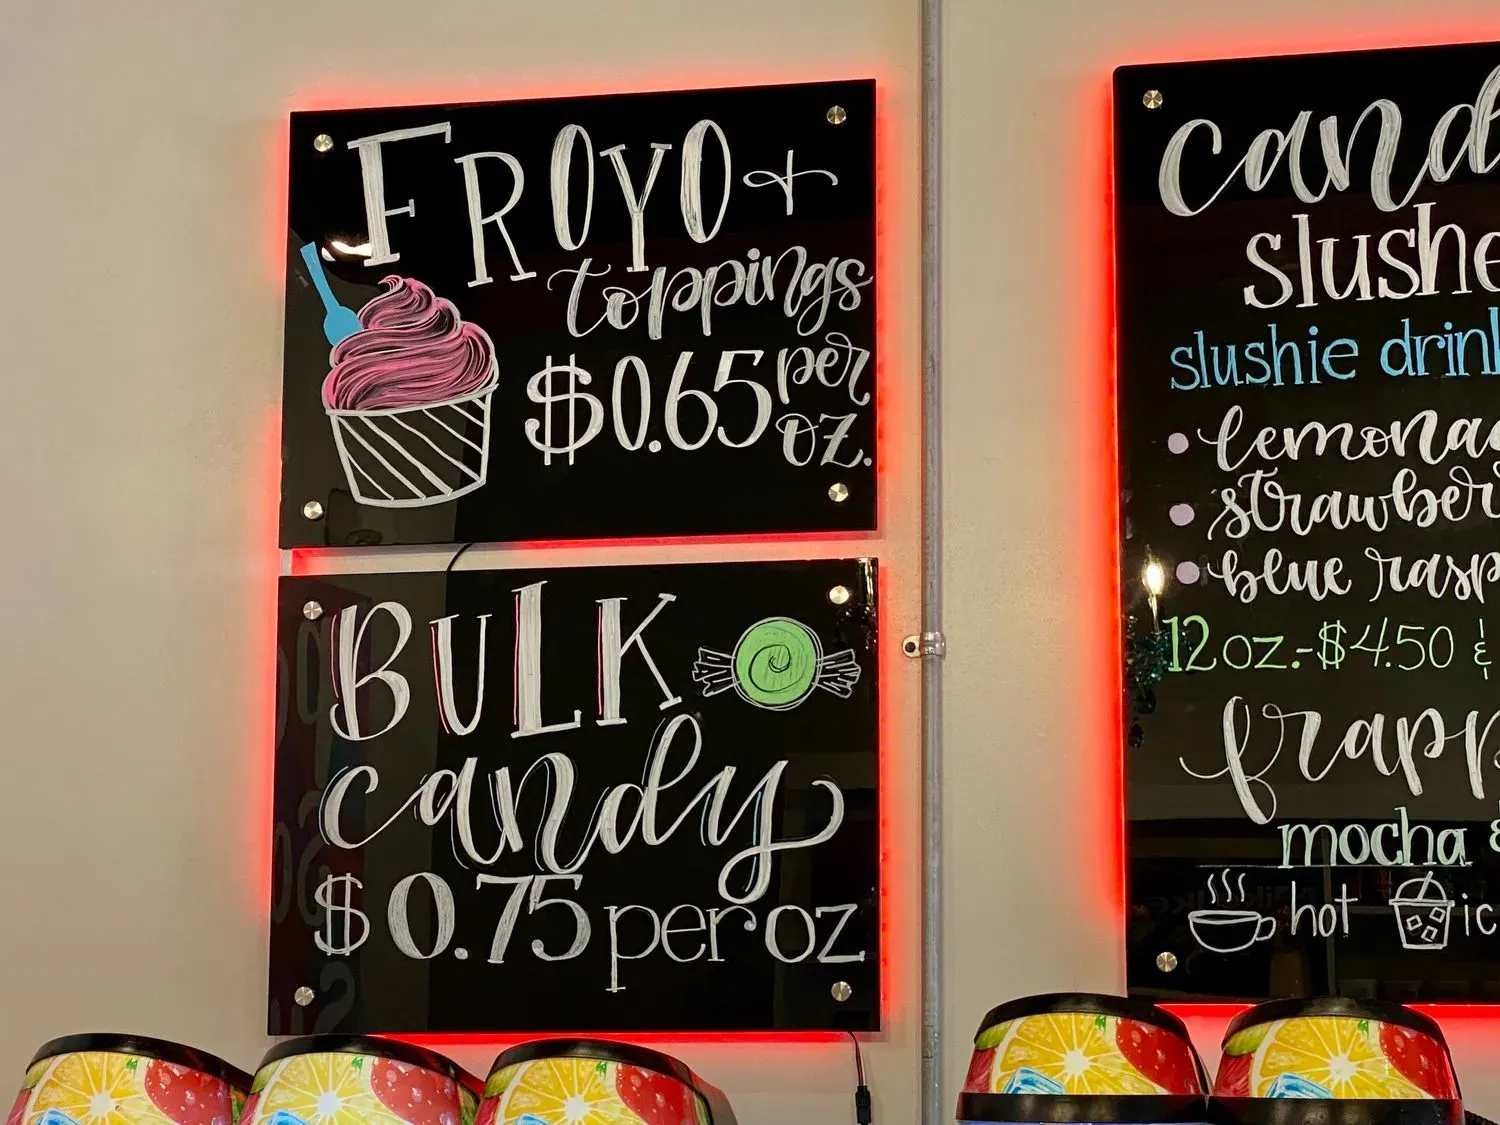 FROYO +
toppings
$0.65 per
oz.
BULK
candy
$0.75 per oz
cand
slushe
slushie drin
• lemona
• strawber
• blue rasp
12 oz.-$4.50 &
frapp
mocha &
hot ic